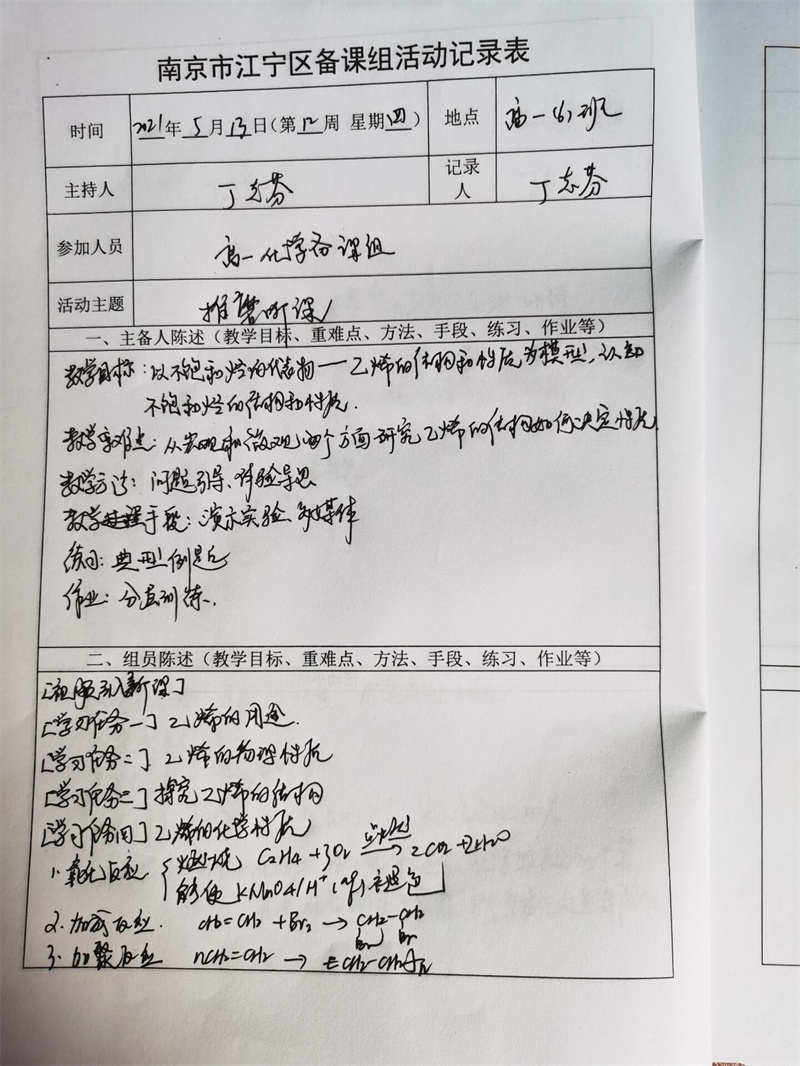 南京市江宁区备课组活动记录表
时间 2021年 5月 13日(第12周 星期四) 地点 高一(6)班
主持人 丁志芬 记录人 丁志芬
参加人员 高一化学备课组
活动主题 推磨听课
一、主备人陈述(教学目标、重难点、方法、手段、练习、作业等)
教学目标:以不饱和烃的代表物——乙烯的结构和性质为模型,认知
不饱和烃的结构和性质.
教学重难点:从宏观和微观两个方面研究乙烯的结构如何决定性质
教学方法:问题引导、实验导思
教学手段:演示实验、多媒体
练习:典型例题
作业:分层训练.
二、组员陈述(教学目标、重难点、方法、手段、练习、作业等)
[视频引入新课]
[学习任务一] 乙烯的用途.
[学习任务二] 乙烯的物理性质
[学习任务三] 探究乙烯的结构
[学习任务四] 乙烯的化学性质
1.氧化反应 { 燃烧 C2H4+3O2 点燃→ 2CO2+2H2O
能使KMnO4/H+(aq)褪色
2.加成反应. CH2=CH2+Br2→CH2-CH2
Br Br
3.加聚反应 nCH2=CH2→[CH2-CH2]n